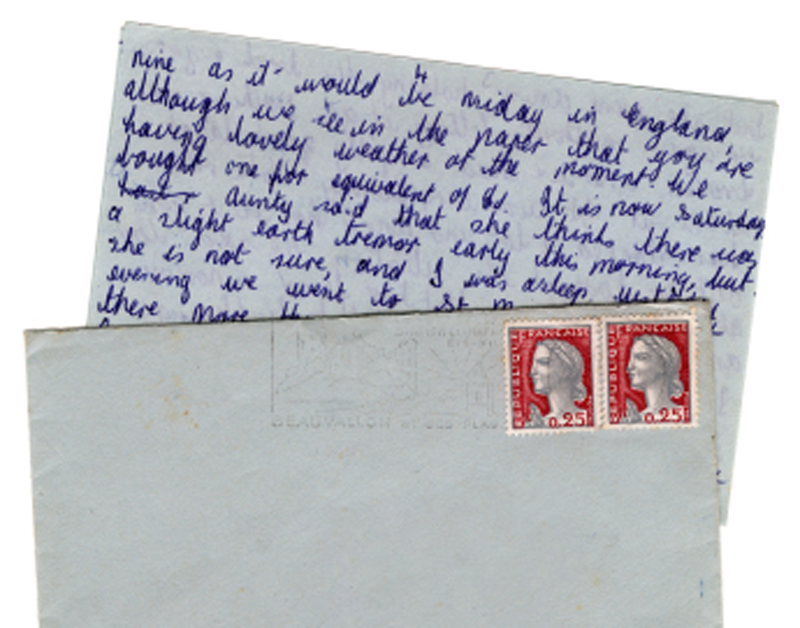 nine as it would be miday in England,
although we see in the paper that you are
having lovely weather at the moment. We
bought one for equivalent of 6d. It is now Saturday
Aunty said that she thinks there was
a slight earth tremor early this morning, but
she is not sure, and I was asleep
evening we went to St M
there
REPUBLIQUE FRANCAISE
0.25
REPUBLIQUE FRANCAISE
0.25
BEAUVALLON ET SES PLAG